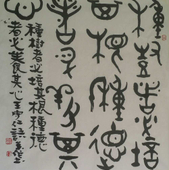 種樹者必培
其根種德
者必養其
種樹者必培其根種德
者必養其心王守仁語